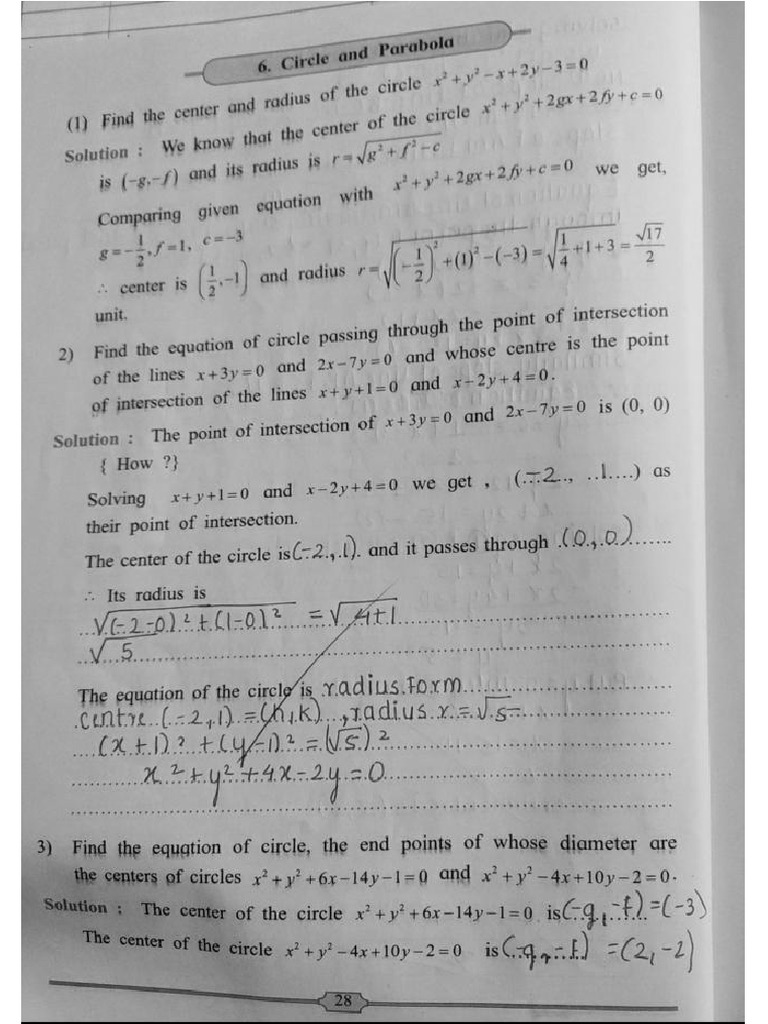 6. Circle and Parabola
(1) Find the center and radius of the circle x² + y² − x + 2y − 3 = 0
Solution : We know that the center of the circle x² + y² + 2gx + 2fy + c = 0
is (−g, −f) and its radius is r = √(g² + f² − c)
Comparing given equation with x² + y² + 2gx + 2fy + c = 0 we get,
g = −1/2, f = 1, c = −3
∴ center is (1/2, −1) and radius r = √((−1/2)² + (1)² − (−3)) = √(1/4 + 1 + 3) = √17/2
unit.
2) Find the equation of circle passing through the point of intersection
of the lines x + 3y = 0 and 2x − 7y = 0 and whose centre is the point
of intersection of the lines x + y + 1 = 0 and x − 2y + 4 = 0.
Solution : The point of intersection of x + 3y = 0 and 2x − 7y = 0 is (0, 0)
{ How ?}
Solving x + y + 1 = 0 and x − 2y + 4 = 0 we get , (−2, 1) as
their point of intersection.
The center of the circle is (−2, 1). and it passes through (0, 0)
∴ Its radius is
√((−2−0)² + (1−0)²) = √4+1
√5
The equation of the circle is radius form
centre (−2, 1) = (h, k) , radius r = √5
(x + 1)² + (y − 1)² = (√5)²
x² + y² + 4x − 2y = 0
3) Find the equation of circle, the end points of whose diameter are
the centers of circles x² + y² + 6x − 14y − 1 = 0 and x² + y² − 4x + 10y − 2 = 0.
Solution : The center of the circle x² + y² + 6x − 14y − 1 = 0 is (−g, −f) = (−3)
The center of the circle x² + y² − 4x + 10y − 2 = 0 is (−g, −f) = (2, −2)
28